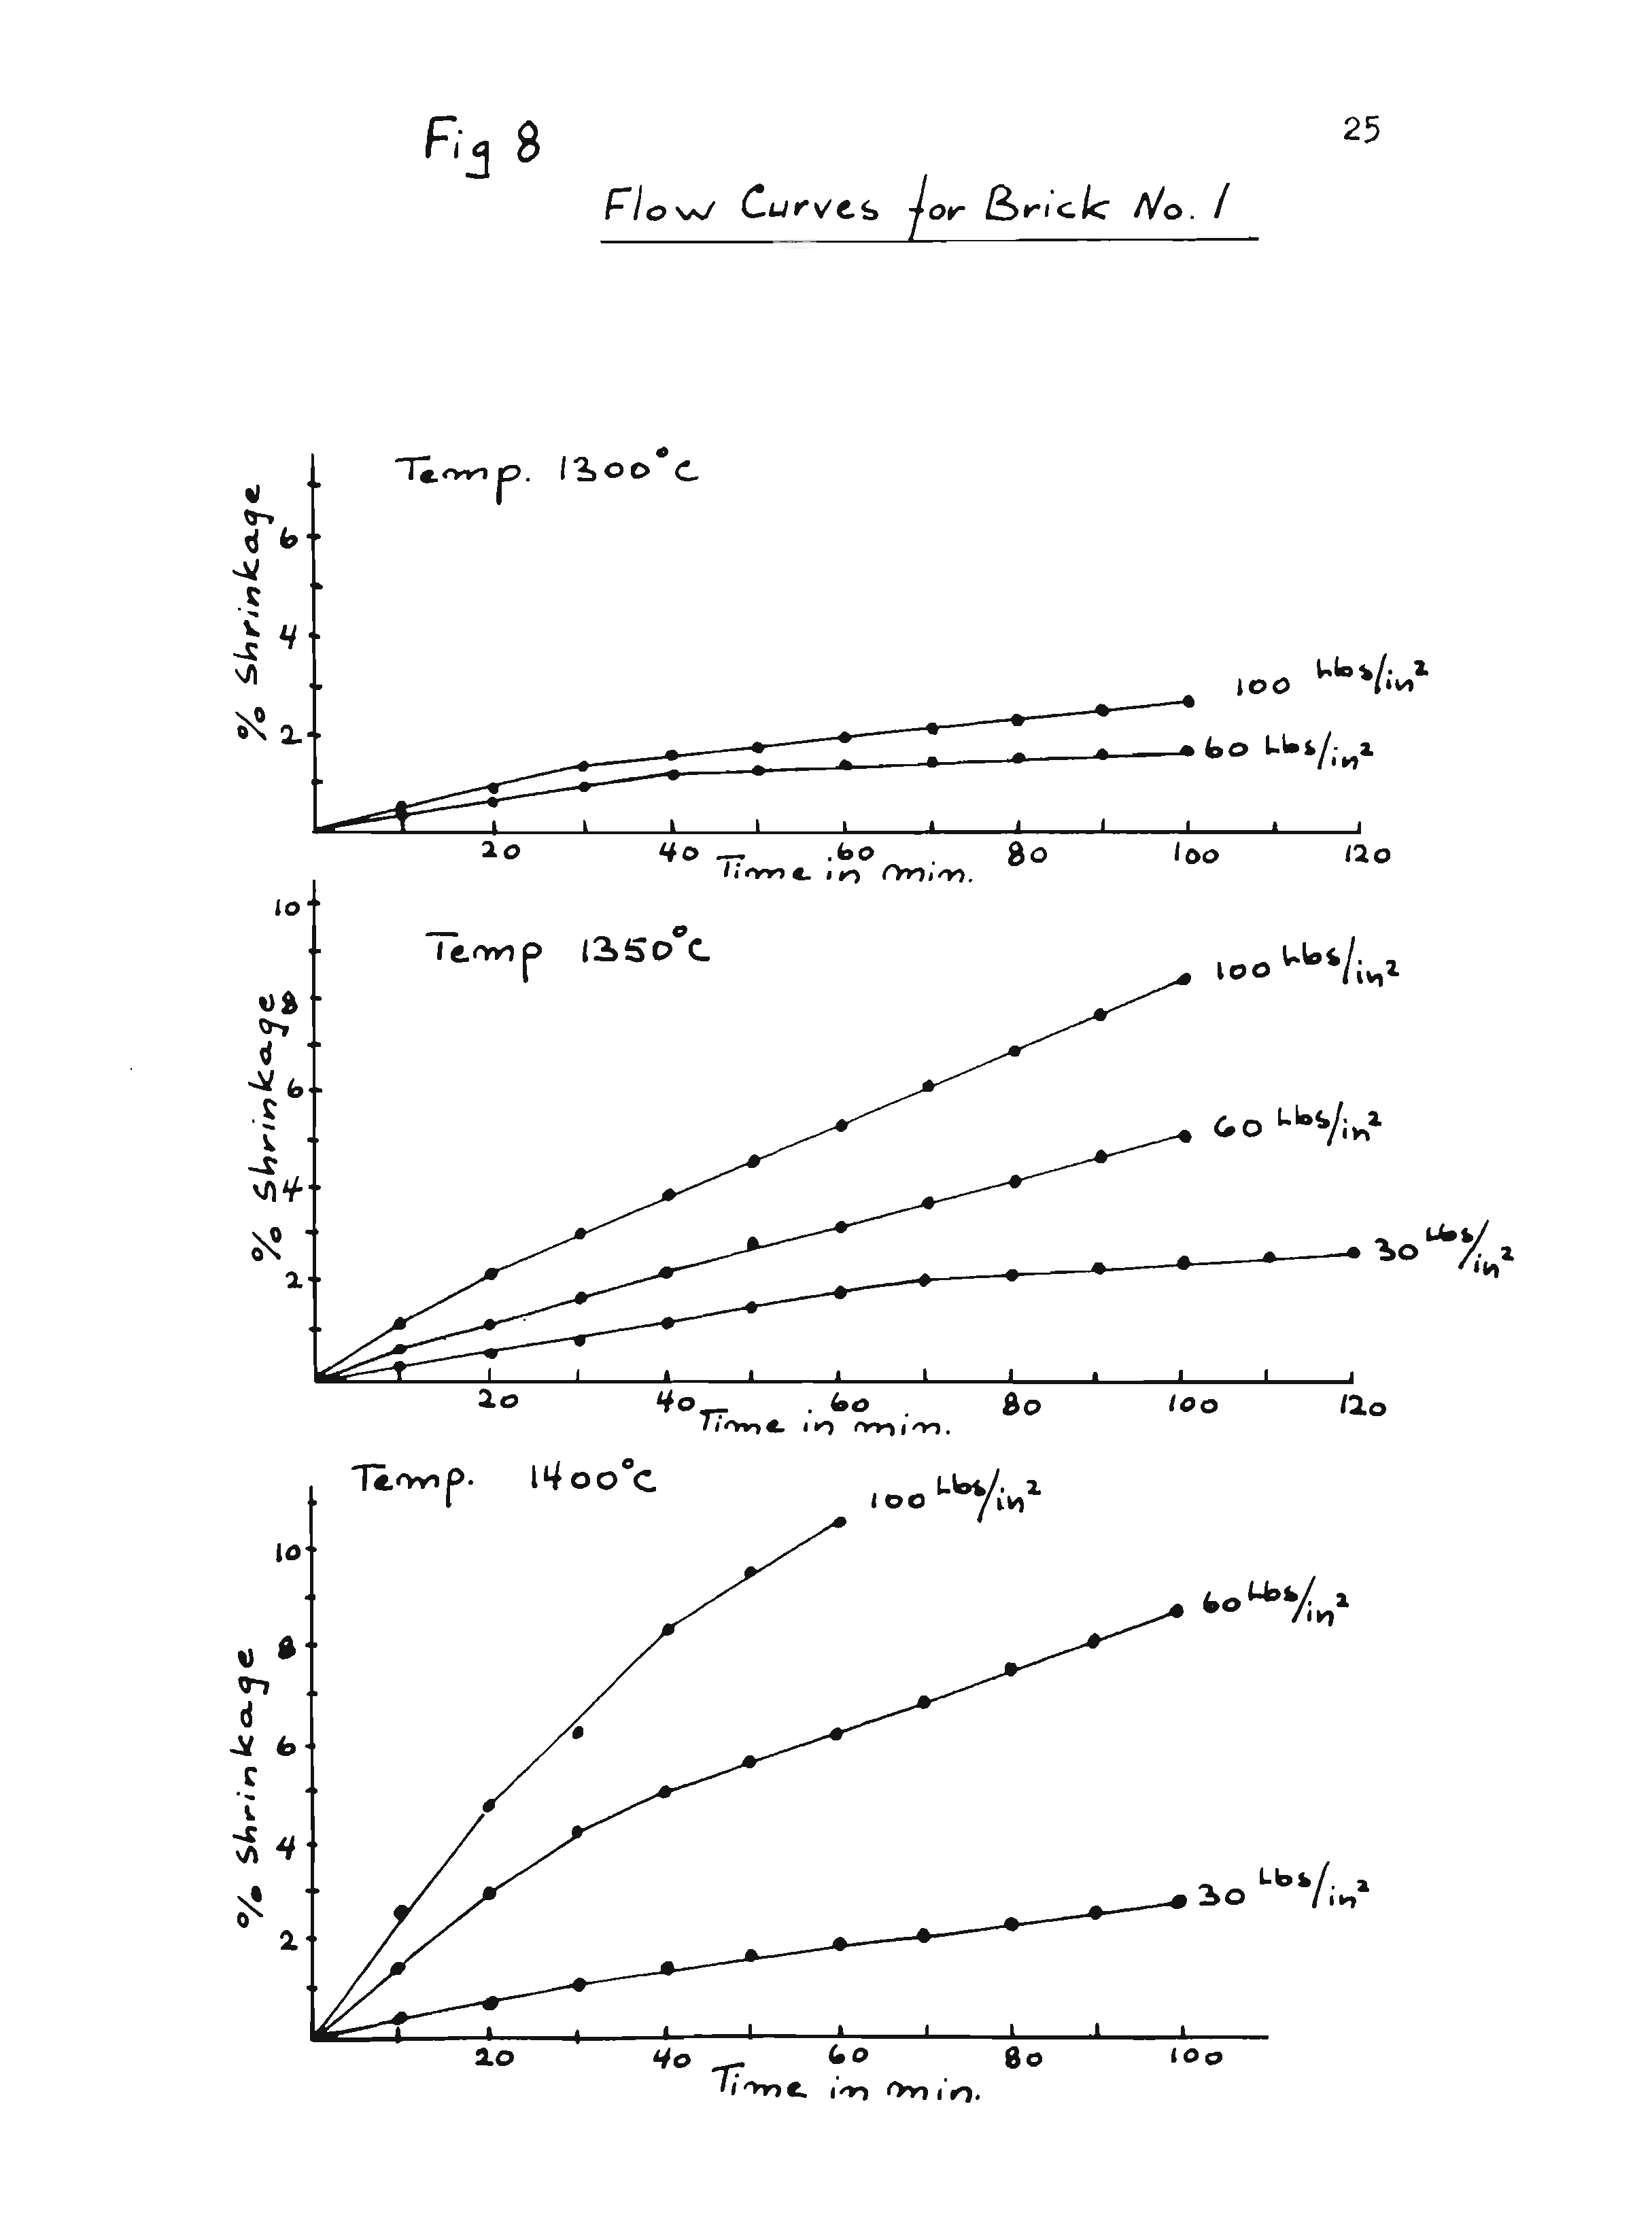 Fig 8
25
Flow Curves for Brick No. 1
Temp. 1300°C
% Shrinkage
6
4
2
100 Lbs/in²
60 Lbs/in²
20 40 60 80 100 120
Time in min.
Temp 1350°C
% Shrinkage
10
8
6
4
2
100 Lbs/in²
60 Lbs/in²
30 Lbs/in²
20 40 60 80 100 120
Time in min.
Temp. 1400°C
% Shrinkage
10
8
6
4
2
100 Lbs/in²
60 Lbs/in²
30 Lbs/in²
20 40 60 80 100
Time in min.